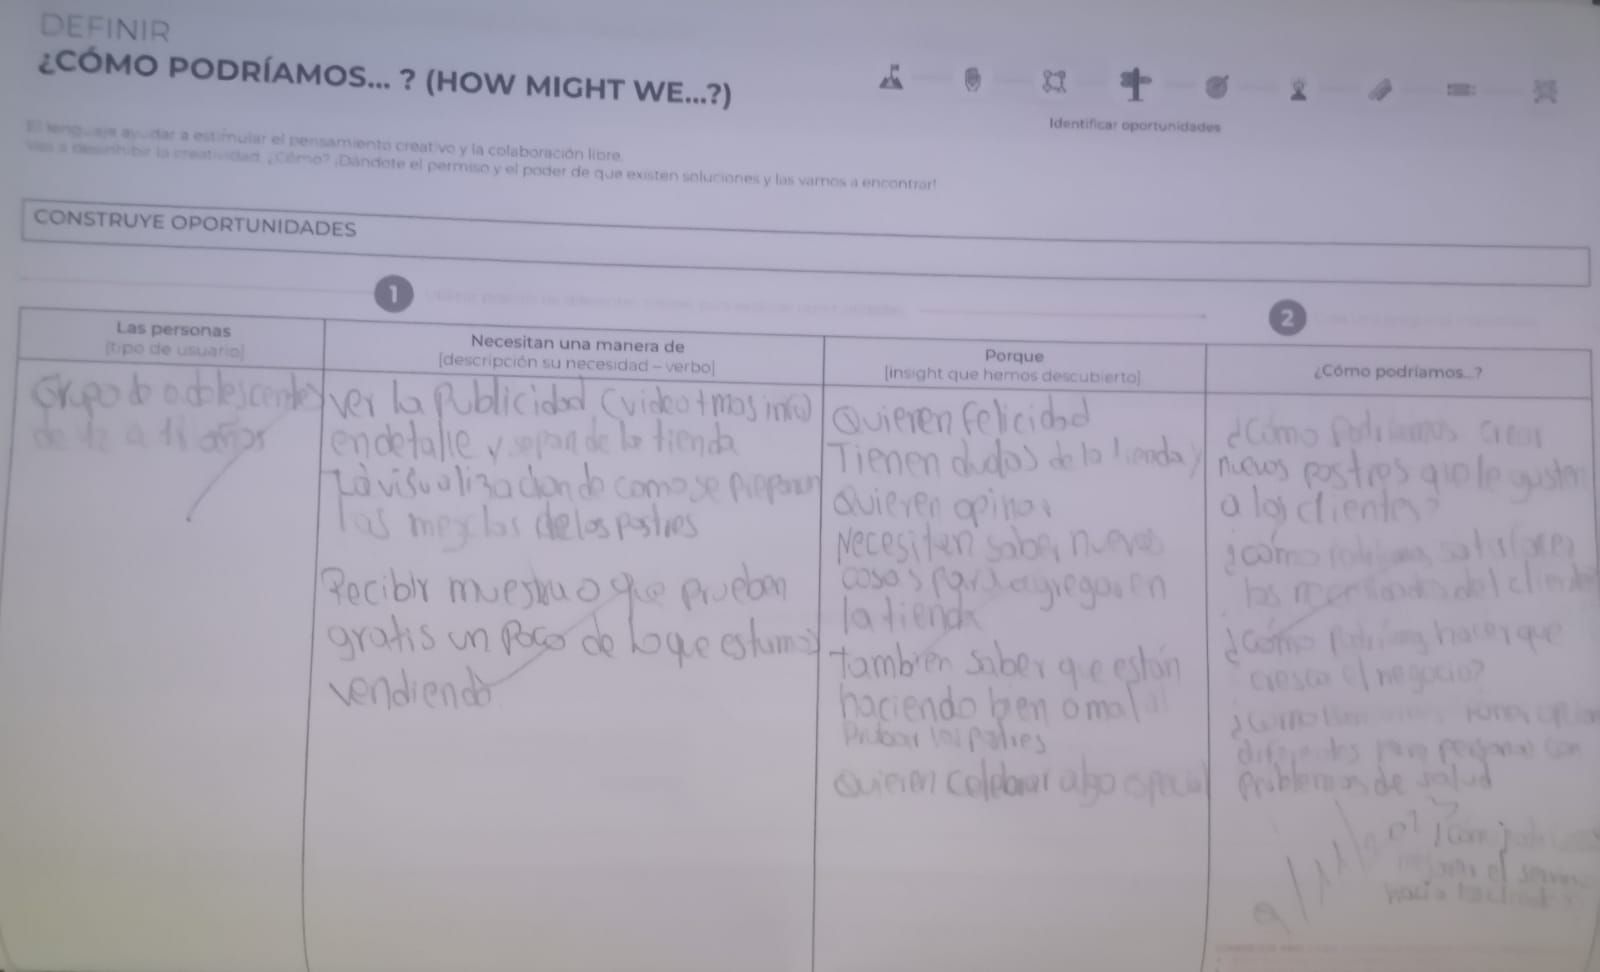 DEFINIR
¿CÓMO PODRÍAMOS... ? (HOW MIGHT WE...?)
Identificar oportunidades
El lenguaje ayudar a estimular el pensamiento creativo y la colaboración libre.
Vas a desinhibir la creatividad. ¿Cómo? ¡Dándote el permiso y el poder de que existen soluciones y las vamos a encontrar!
CONSTRUYE OPORTUNIDADES
1
2
Las personas
[tipo de usuario]
Grupo de adolescentes
de a años
Necesitan una manera de
[descripción su necesidad – verbo]
ver la Publicidad (video + mas info)
en detalle y sepan de la tienda
La visualizacion de como se preparan
las mezclas de los postres
Recibir muestra o que prueben
gratis un poco de lo que estamos
vendiendo
Porque
[insight que hemos descubierto]
Quieren felicidad
Tienen dudas de la tienda y
Quieren opinar
Necesiten saber nuevas
cosas para agregar en
la tienda
tambien saber que están
haciendo bien o mal
Probar los postres
Quieren celebrar algo especial
¿Cómo podríamos...?
¿Cómo Podríamos crear
nuevos postres que le gusten
a los clientes?
¿Cómo podriamos satisfacer
las del cliente
¿Cómo Podríamos hacer que
cresca el negocio?
diferentes para personas con
Problemas de salud
mejorar el servicio
hacia